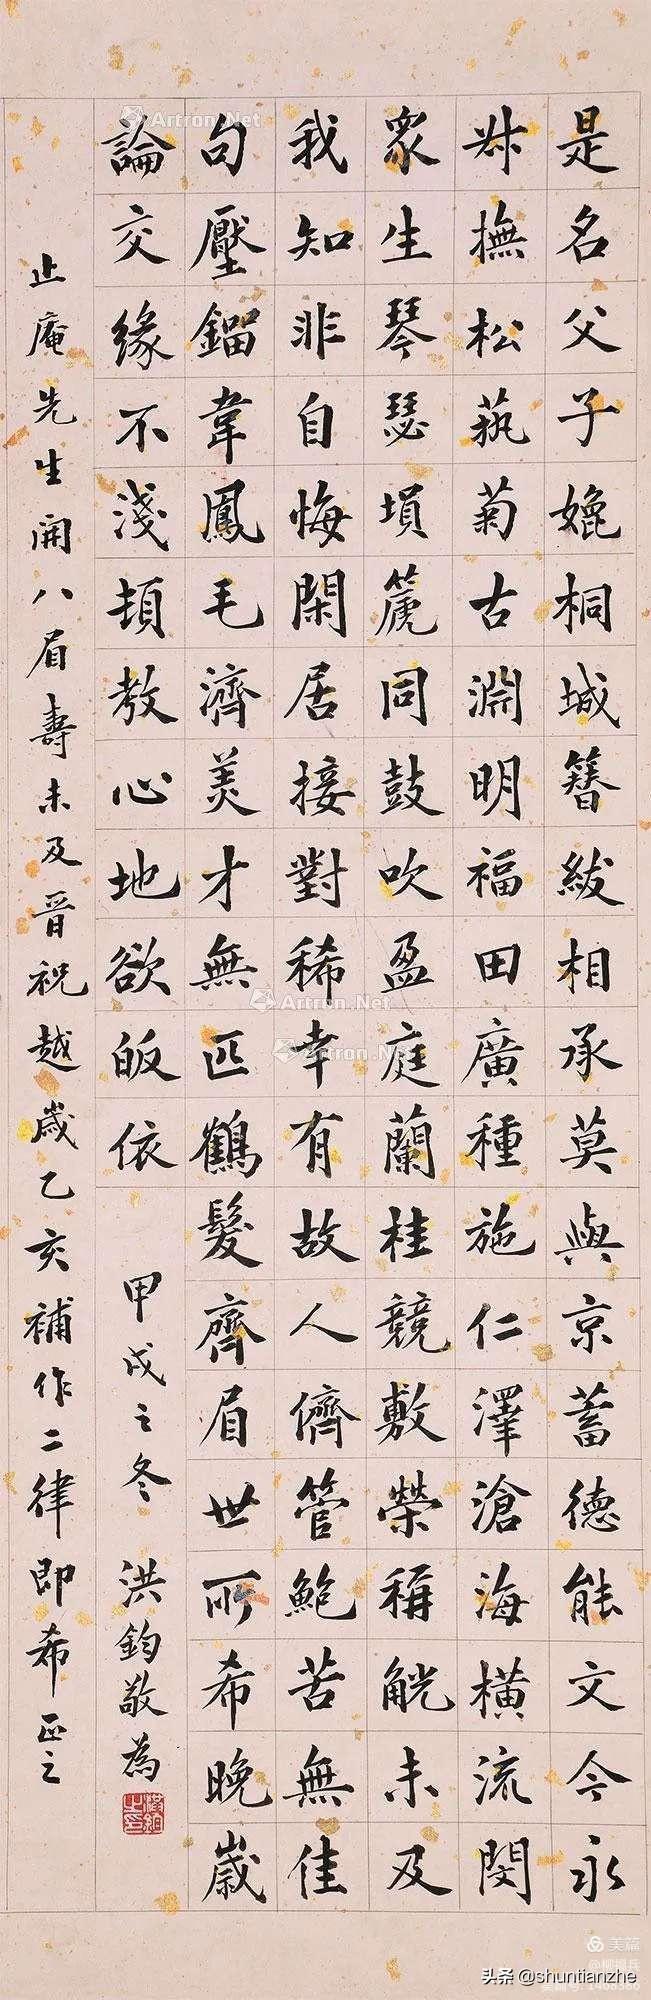 是名父子媲桐城簪紱相承莫與京蓄德能文今永
叔撫松蓺菊古淵明福田廣種施仁澤滄海橫流閔
眾生琴瑟塤篪同鼓吹盈庭蘭桂競敷榮稱觥未及
我知非自悔閑居接對稀幸有故人儕管鮑苦無佳
句壓鎦韋鳳毛濟美才無匹鶴髮齊眉世所希晚歲
論交緣不淺頓教心地欲皈依
甲戌之冬 洪鈞敬為
止庵先生開八眉壽未及晉祝越歲乙亥補作二律即希正之
Artron.Net
Artron.Net
Artron.Net
Artron.Net
美篇
头条 @shuntianzhe